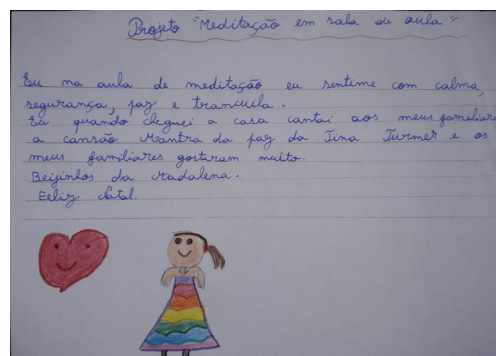 Projeto "Meditação em sala de aula"
Eu na aula de meditação eu sentime com calma,
segurança, paz e trancuila.
Eu quando cheguei a casa cantai aos meus familiares
a cansão Mantra da paz da Tina Turmer e os
meus familiares gostaram muito.
Beijinhos da Madalena.
Feliz Natal.